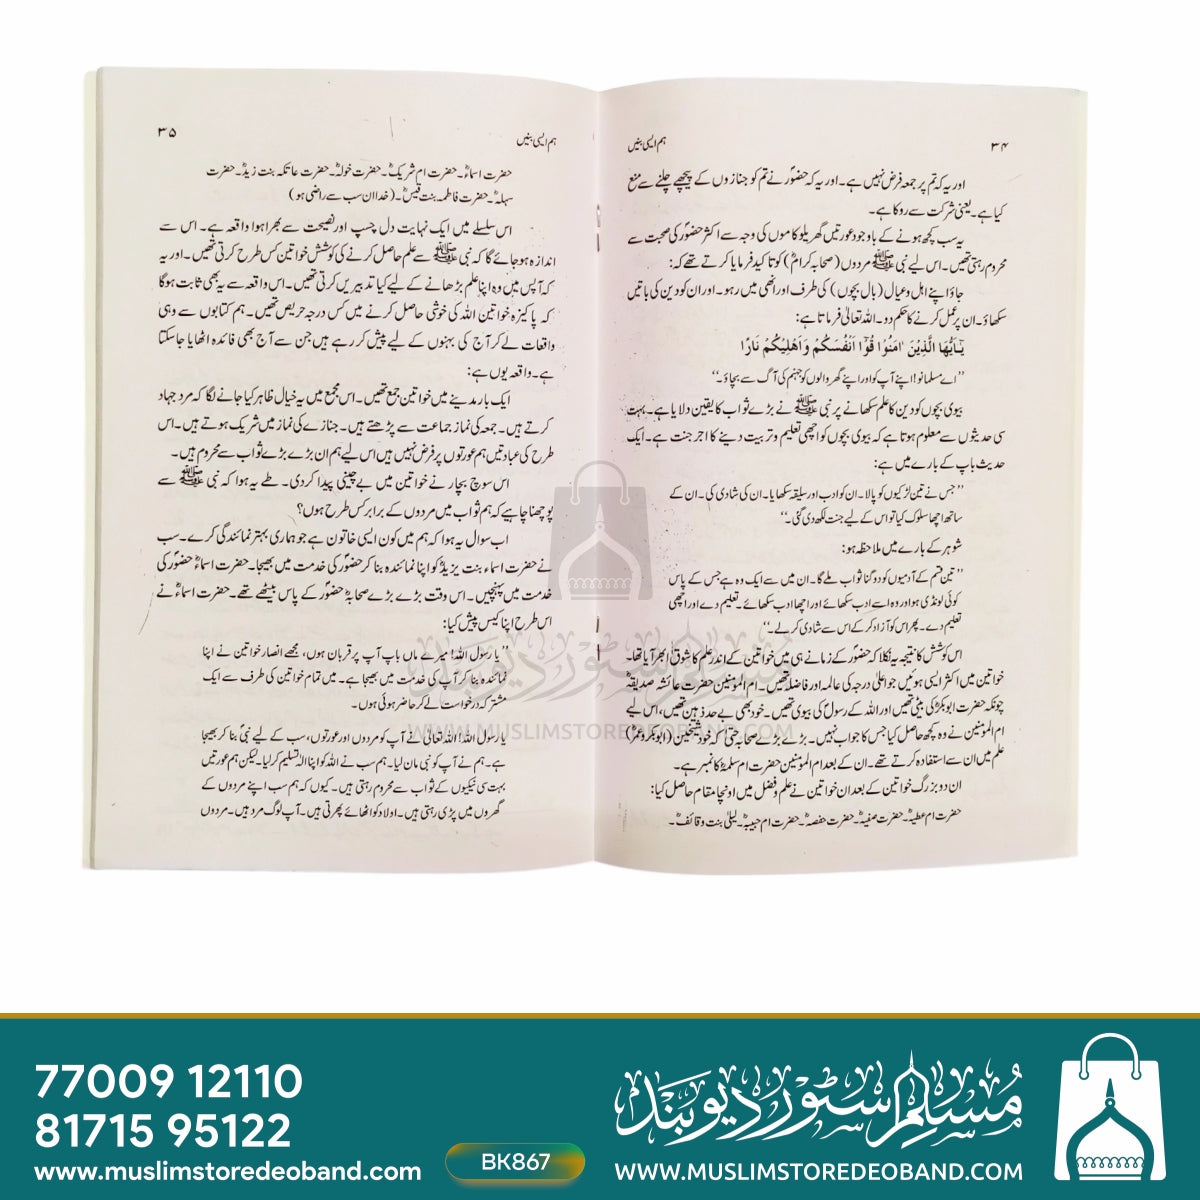 ۳۴
ہم ایسی بنیں
اور یہ کہ تم پر جمعہ فرض نہیں ہے۔ اور یہ کہ حضورؐ نے تم کو جنازوں کے پیچھے چلنے سے منع
کیا ہے۔ یعنی شرکت سے روکا ہے۔
یہ سب کچھ ہونے کے باوجود عورتیں گھریلو کاموں کی وجہ سے اکثر حضورؐ کی صحبت سے
محروم رہتی تھیں۔ اس لیے نبی ﷺ مردوں (صحابہ کرامؓ) کو تاکید فرمایا کرتے تھے کہ:
جاؤ اپنے اہل و عیال (بال بچوں) کی طرف اور انھی میں رہو۔ اور ان کو دین کی باتیں
سکھاؤ۔ ان پر عمل کرنے کا حکم دو۔ اللہ تعالیٰ فرماتا ہے:
یٰۤاَیُّهَا الَّذِیْنَ اٰمَنُوْا قُوْۤا اَنْفُسَکُمْ وَ اَهْلِیْکُمْ نَارًا
’’اے مسلمانو! اپنے آپ کو اور اپنے گھر والوں کو جہنم کی آگ سے بچاؤ۔‘‘
بیوی بچوں کو دین کا علم سکھانے پر نبی ﷺ نے بڑے ثواب کا یقین دلایا ہے۔ بہت
سی حدیثوں سے معلوم ہوتا ہے کہ بیوی بچوں کو اچھی تعلیم و تربیت دینے کا اجر جنت ہے۔ ایک
حدیث باپ کے بارے میں ہے:
’’جس نے تین لڑکیوں کو پالا۔ ان کو ادب اور سلیقہ سکھایا۔ ان کی شادی کی۔ ان کے
ساتھ اچھا سلوک کیا تو اس کے لیے جنت لکھ دی گئی۔‘‘
شوہر کے بارے میں ملاحظہ ہو:
’’تین قسم کے آدمیوں کو دوگنا ثواب ملے گا۔ ان میں سے ایک وہ ہے جس کے پاس
کوئی لونڈی ہو اور وہ اسے ادب سکھائے اور اچھا ادب سکھائے۔ تعلیم دے اور اچھی
تعلیم دے۔ پھر اس کو آزاد کر کے اس سے شادی کر لے۔‘‘
اس کوشش کا نتیجہ یہ نکلا کہ حضورؐ کے زمانے ہی میں خواتین کے اندر علم کا شوق ابھر آیا تھا۔
خواتین میں اکثر ایسی ہوئیں جو اعلیٰ درجہ کی عالمہ اور فاضلہ تھیں۔ ام المؤمنین حضرت عائشہ صدیقہؓ
چونکہ حضرت ابوبکرؓ کی بیٹی تھیں اور اللہ کے رسولؐ کی بیوی تھیں۔ خود بھی بے حد ذہین تھیں، اس لیے
ام المومنین نے وہ کچھ حاصل کیا جس کا جواب نہیں۔ بڑے بڑے صحابہ حتیٰ کہ خود شیخین (ابوبکرؓ و عمرؓ)
علم میں ان سے استفادہ کرتے تھے۔ ان کے بعد ام المومنین حضرت ام سلمہؓ کا نمبر ہے۔
ان دو بزرگ خواتین کے بعد ان خواتین نے علم و فضل میں اونچا مقام حاصل کیا:
حضرت ام عطیہؓ۔ حضرت صفیہؓ۔ حضرت حفصہؓ۔ حضرت ام حبیبہؓ۔ لیلیٰ بنت وقائفؓ۔
ہم ایسی بنیں
۳۵
حضرت اسماءؓ۔ حضرت ام شریکؓ۔ حضرت خولہؓ۔ حضرت عاتکہ بنت زیدؓ۔ حضرت
سہلہؓ۔ حضرت فاطمہ بنت قیسؓ۔ (خدا ان سب سے راضی ہو)
اس سلسلے میں ایک نہایت دل چسپ اور نصیحت سے بھرا ہوا واقعہ ہے۔ اس سے
اندازہ ہو جائے گا کہ نبی ﷺ سے علم حاصل کرنے کی کوشش خواتین کس طرح کرتی تھیں۔ اور یہ
کہ آپس میں وہ اپنا علم بڑھانے کے لیے کیا تدبیریں کرتی تھیں۔ اس واقعہ سے یہ بھی ثابت ہوگا
کہ پاکیزہ خواتین اللہ کی خوشی حاصل کرنے میں کس درجہ حریص تھیں۔ ہم کتابوں سے وہی
واقعات لے کر آج کی بہنوں کے لیے پیش کر رہے ہیں جن سے آج بھی فائدہ اٹھایا جا سکتا
ہے۔ واقعہ یوں ہے:
ایک بار مدینے میں خواتین جمع تھیں۔ اس مجمع میں یہ خیال ظاہر کیا جانے لگا کہ مرد جہاد
کرتے ہیں۔ جمعہ کی نماز جماعت سے پڑھتے ہیں۔ جنازے کی نماز میں شریک ہوتے ہیں۔ اس
طرح کی عبادتیں ہم عورتوں پر فرض نہیں ہیں اس لیے ہم ان بڑے بڑے ثواب سے محروم ہیں۔
اس سوچ بچار نے خواتین میں بے چینی پیدا کر دی۔ طے یہ ہوا کہ نبی ﷺ سے
پوچھنا چاہیے کہ ہم ثواب میں مردوں کے برابر کس طرح ہوں؟
اب سوال یہ ہوا کہ ہم میں کون ایسی خاتون ہے جو ہماری بہتر نمائندگی کرے۔ سب
نے حضرت اسماء بنت یزیدؓ کو اپنا نمائندہ بنا کر حضورؐ کی خدمت میں بھیجا۔ حضرت اسماءؓ حضورؐ کی
خدمت میں پہنچیں۔ اس وقت بڑے بڑے صحابہؓ حضورؐ کے پاس بیٹھے تھے۔ حضرت اسماءؓ نے
اس طرح اپنا کیس پیش کیا:
’’یا رسول اللہ! میرے ماں باپ آپ پر قربان ہوں، مجھے انصار خواتین نے اپنا
نمائندہ بنا کر آپ کی خدمت میں بھیجا ہے۔ میں تمام خواتین کی طرف سے ایک
مشترکہ درخواست لے کر حاضر ہوئی ہوں۔
یا رسول اللہ! اللہ تعالیٰ نے آپ کو مردوں اور عورتوں، سب کے لیے نبی بنا کر بھیجا
ہے۔ ہم نے آپ کو نبی مان لیا۔ ہم سب نے اللہ کو اپنا الٰہ تسلیم کر لیا۔ لیکن ہم عورتیں
بہت سی نیکیوں کے ثواب سے محروم رہتی ہیں۔ کیوں کہ ہم سب اپنے مردوں کے
گھروں میں پڑی رہتی ہیں۔ اولاد کو اٹھائے پھرتی ہیں۔ آپ لوگ مرد ہیں۔ مردوں
مسلم سٹور دیوبند
WWW.MUSLIMSTOREDEOBAND.COM
77009 12110
81715 95122
www.muslimstoredeoband.com
BK867
مسلم سٹور دیوبند
WWW.MUSLIMSTOREDEOBAND.COM